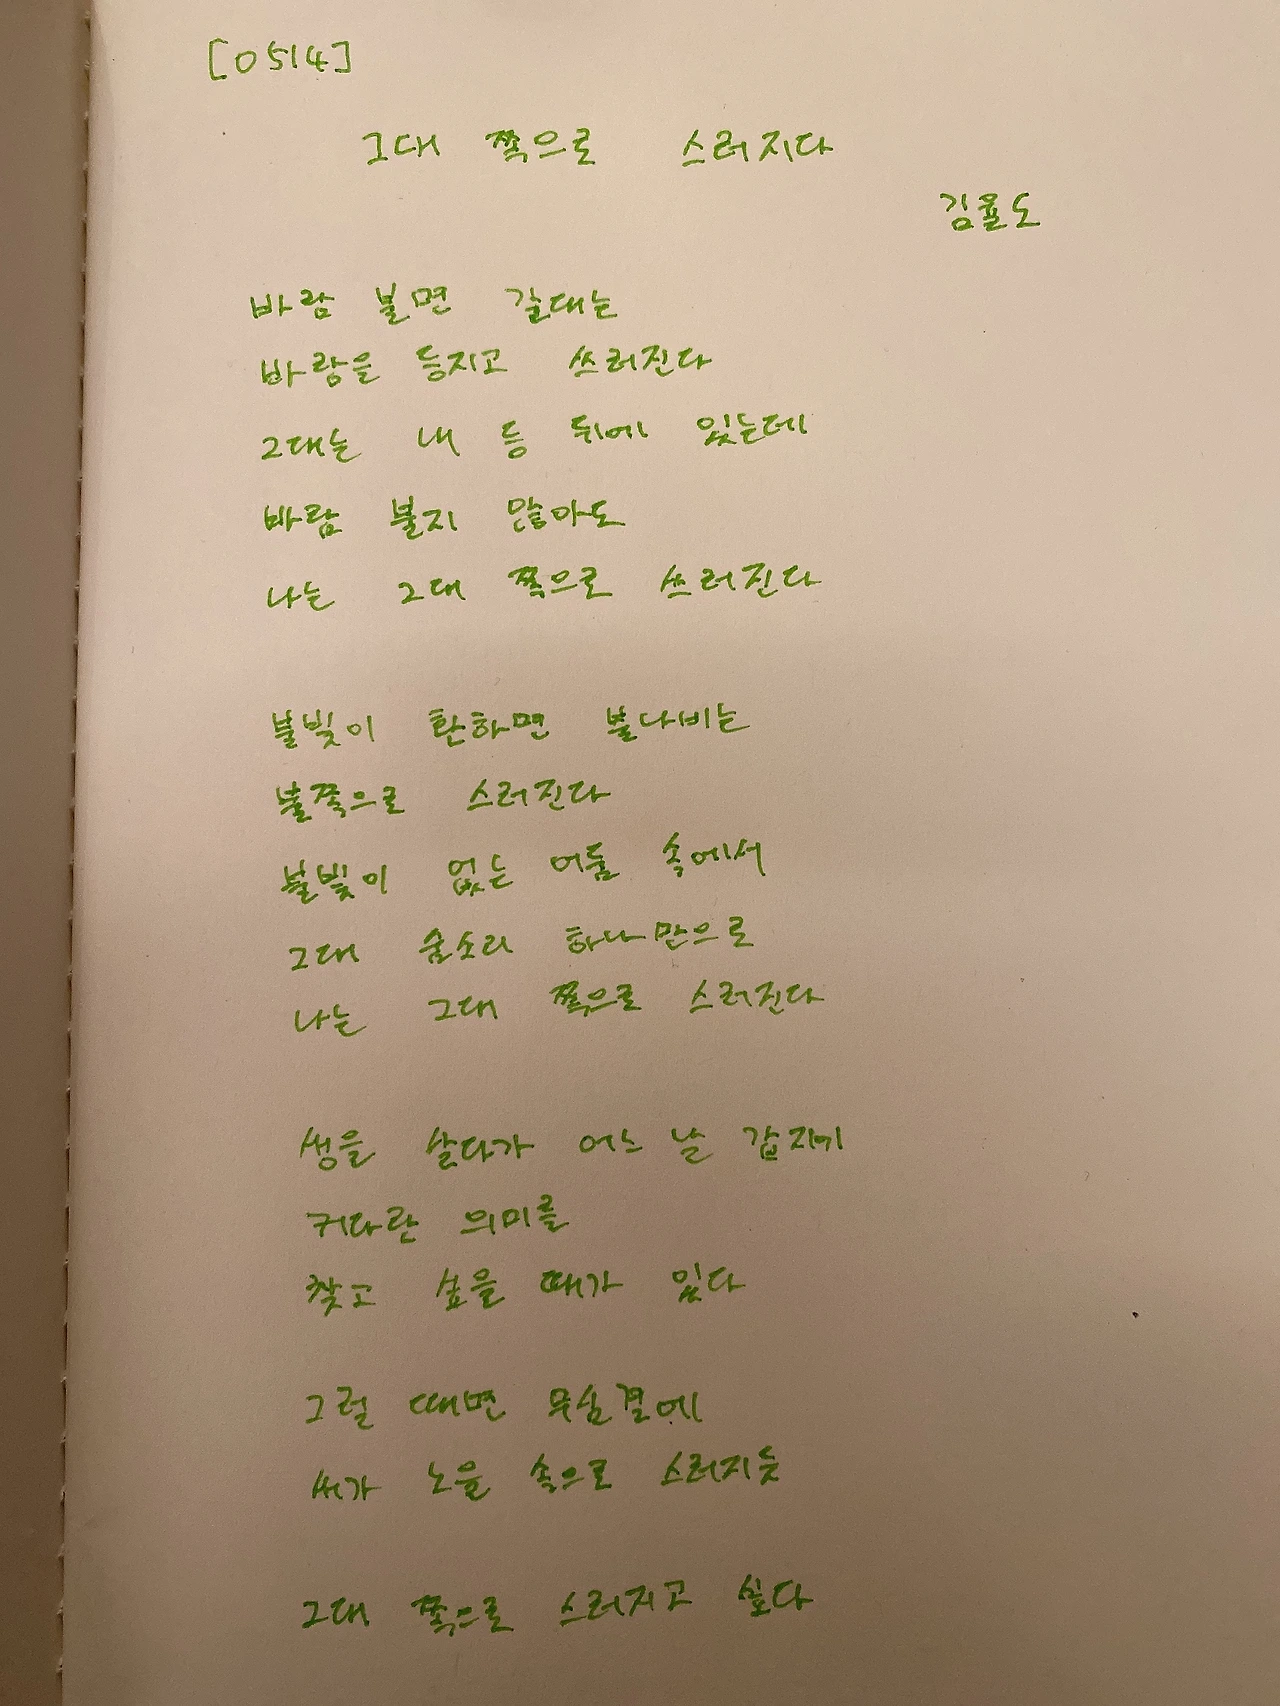 [0514]
그대 쪽으로 스러지다
김율도
바람 불면 갈대는
바람을 등지고 쓰러진다
그대는 내 등 뒤에 있는데
바람 불지 않아도
나는 그대 쪽으로 쓰러진다
불빛이 환하면 불나비는
불쪽으로 스러진다
불빛이 없는 어둠 속에서
그대 숨소리 하나만으로
나는 그대 쪽으로 스러진다
생을 살다가 어느 날 갑자기
커다란 의미를
찾고 싶을 때가 있다
그럴 때면 무심결에
새가 노을 속으로 스러지듯
그대 쪽으로 스러지고 싶다